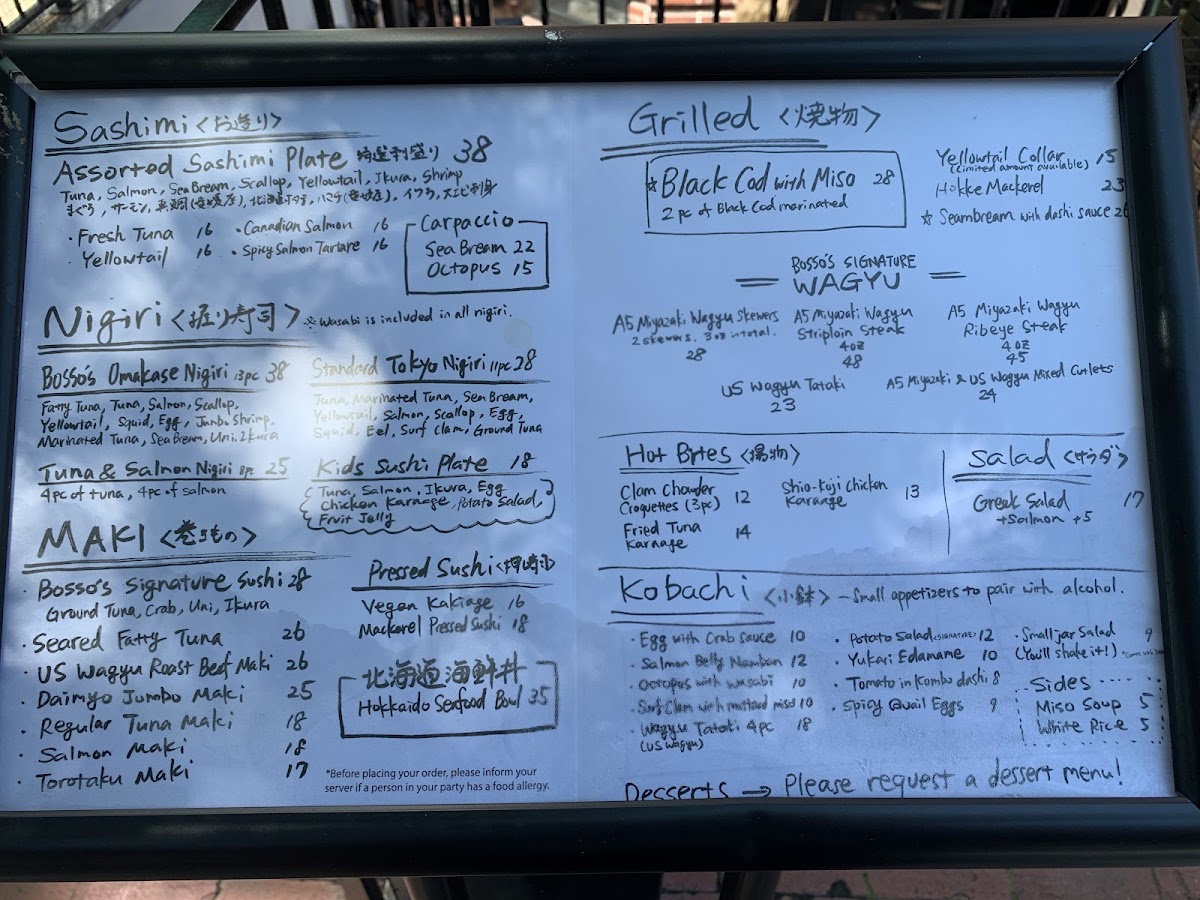 Sashimi <お造り>
Assorted Sashimi Plate 特選刺盛り 38
Tuna, Salmon, Sea Bream, Scallop, Yellowtail, Ikura, Shrimp
まぐろ, サーモン, 真鯛(愛媛産), 北海道ホタテ, ハマチ(愛媛産), イクラ, 大エビ刺身
・Fresh Tuna 16
・Canadian Salmon 16
・Yellowtail 16
・Spicy Salmon Tartare 16
Carpaccio
Sea Bream 22
Octopus 15
Nigiri <握り寿司> ※Wasabi is included in all nigiri.
Bosso's Omakase Nigiri 13pc 38
Fatty Tuna, Tuna, Salmon, Scallop,
Yellowtail, Squid, Egg, Jumbo Shrimp,
Marinated Tuna, Sea Bream, Uni, Ikura
Standard Tokyo Nigiri 11pc 28
Tuna, Marinated Tuna, Sea Bream,
Yellowtail, Salmon, Scallop, Egg,
Squid, Eel, Surf Clam, Ground Tuna
Tuna & Salmon Nigiri 8pc 25
4pc of tuna, 4pc of salmon
Kids Sushi Plate 18
Tuna, Salmon, Ikura, Egg
Chicken Karaage, Potato Salad,
Fruit Jelly
MAKI <巻きもの>
・Bosso's Signature Sushi 28
Ground Tuna, Crab, Uni, Ikura
・Seared Fatty Tuna 26
・US Wagyu Roast Beef Maki 26
・Daimyo Jumbo Maki 25
・Regular Tuna Maki 18
・Salmon Maki 18
・Torotaku Maki 17
Pressed Sushi
Vegan Kakiage 16
Mackerel Pressed Sushi 18
北海道海鮮丼
Hokkaido Seafood Bowl 35
*Before placing your order, please inform your
server if a person in your party has a food allergy.
Grilled <焼物>
☆Black Cod with Miso 28
2pc of Black Cod marinated
Yellowtail Collar 15
(Limited amount available)
Hokke Mackerel 23
☆Seambream with dashi sauce 26
BOSSO'S SIGNATURE
WAGYU
A5 Miyazaki Wagyu Skewers
2 skewers, 3oz in total.
28
A5 Miyazaki Wagyu
Striploin Steak
4oz
48
A5 Miyazaki Wagyu
Ribeye Steak
4oz
45
US Wagyu Tataki
23
A5 Miyazaki & US Wagyu Mixed Cutlets
24
Hot Bites <揚物>
Clam Chowder
Croquettes (3pc) 12
Fried Tuna
Karaage 14
Shio-Koji Chicken
Karaage 13
Salad <サラダ>
Greek Salad 17
+Salmon +5
Kobachi <小鉢> - Small appetizers to pair with alcohol.
・Egg with Crab Sauce 10
・Salmon Belly Nanban 12
・Octopus with wasabi 10
・Surf Clam with mustard miso 10
・Wagyu Tataki 4pc 18
(US Wagyu)
・Potato Salad <SIGNATURE> 12
・Yukari Edamame 10
・Tomato in Kombu dashi 8
・Spicy Quail Eggs 9
・Small jar Salad 9
(You'll shake it!)
Sides
Miso Soup 5
White Rice 5
Desserts → Please request a dessert menu!